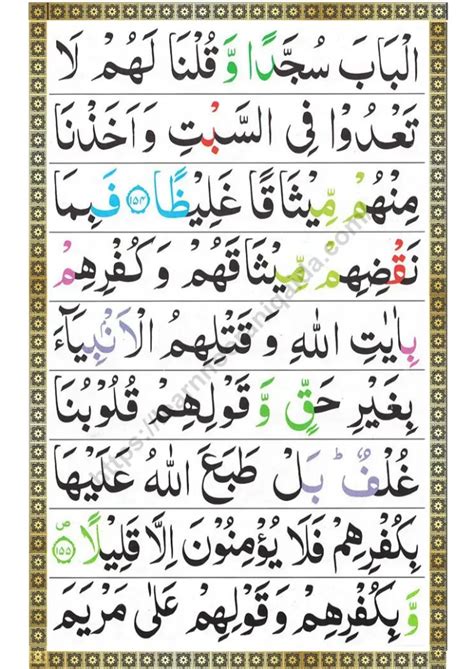 الْبَابَ سُجَّدًا وَّ قُلْنَا لَهُمْ لَا
تَعْدُوْا فِى السَّبْتِ وَاَخَذْنَا
مِنْهُمْ مِّيْثَاقًا غَلِيْظًا ﴿١٥٤﴾ فَبِمَا
نَقْضِهِمْ مِّيْثَاقَهُمْ وَ كُفْرِهِمْ
بِاٰيٰتِ اللّٰهِ وَ قَتْلِهِمُ الْاَنْۢبِيَآءَ
بِغَيْرِ حَقٍّ وَّ قَوْلِهِمْ قُلُوْبُنَا
غُلْفٌ ؕ بَلْ طَبَعَ اللّٰهُ عَلَيْهَا
بِكُفْرِهِمْ فَلَا يُؤْمِنُوْنَ اِلَّا قَلِيْلًا ۪ ﴿١٥٥﴾
وَّ بِكُفْرِهِمْ وَ قَوْلِهِمْ عَلٰى مَرْيَمَ